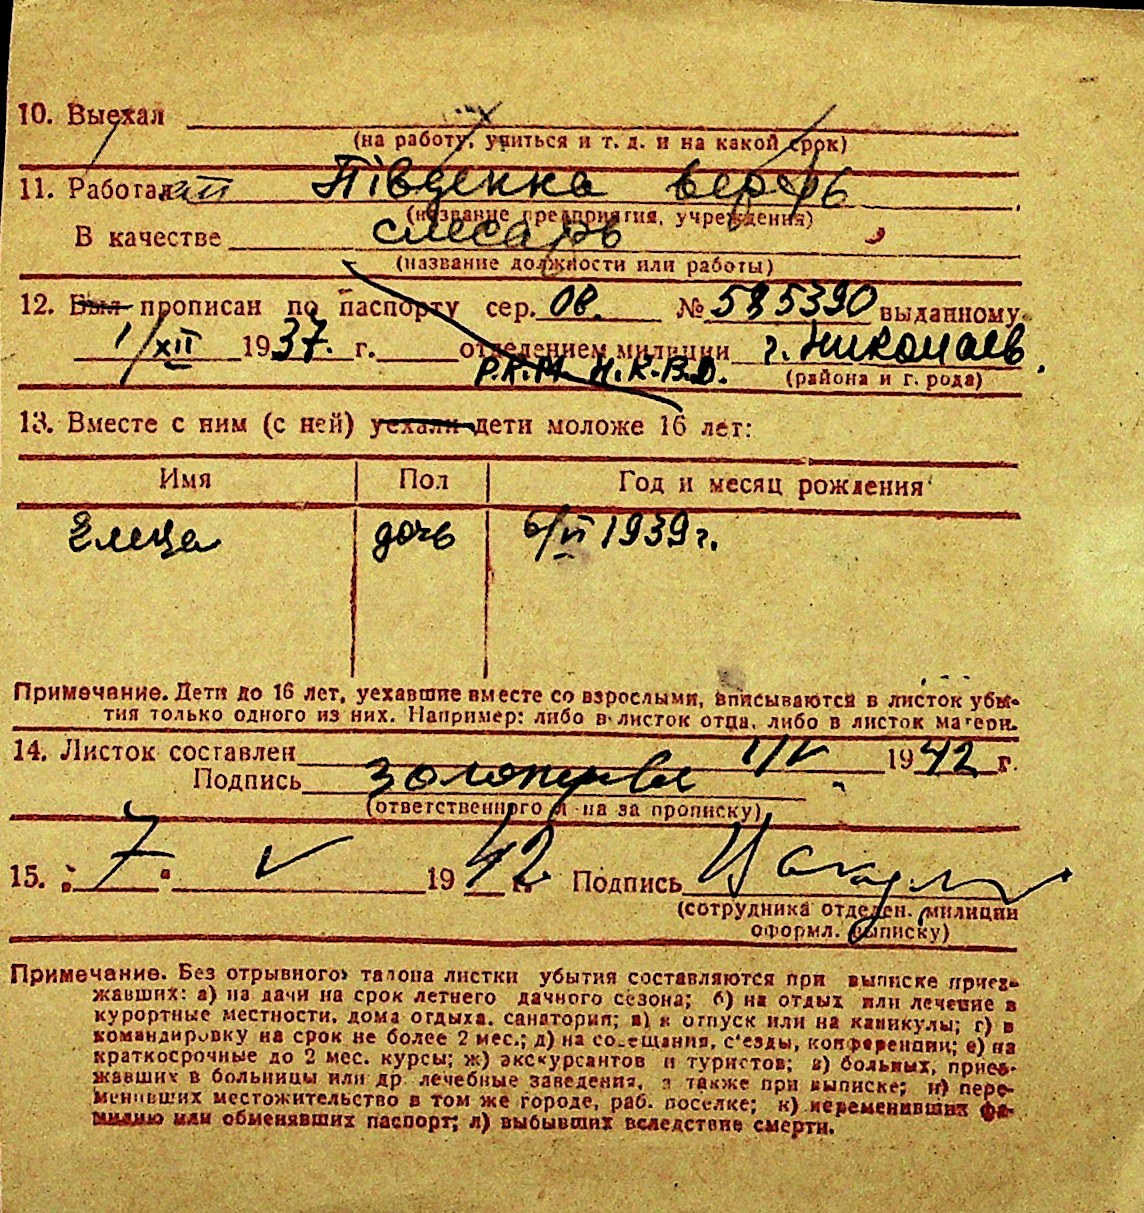 10. Выехал
(на работу, учиться и т. д. и на какой срок)
11. Работал Південна верфь
(название предприятия, учреждения)
В качестве слесарь
(название должности или работы)
12. Был прописан по паспорту сер. ОВ. № 585390 выданному
1/XII 1937. г. отделением милиции г. Николаев.
Р.К.М. Н.К.В.Д. (района и г. рода)
13. Вместе с ним (с ней) уехали дети моложе 16 лет:
Имя Пол Год и месяц рождения
дочь 6/VI 1939 г.
Примечание. Дети до 16 лет, уехавшие вместе со взрослыми, вписываются в листок убы-
тия только одного из них. Например: либо в листок отца, либо в листок матери.
14. Листок составлен 1/V 1942 г.
Подпись
(ответственного л на за прописку)
15. " 7 " V 1942 г. Подпись
(сотрудника отделен. милиции
оформл. выписку)
Примечание. Без отрывного талона листки убытия составляются при выписке приез-
жавших: а) на дачи на срок летнего дачного сезона; б) на отдых или лечение в
курортные местности, дома отдыха, санатория; в) в отпуск или на каникулы; г) в
командировку на срок не более 2 мес.; д) на совещания, с'езды, конференции; е) на
краткосрочные до 2 мес. курсы; ж) экскурсантов и туристов; з) больных, приез-
жавших в больницы или др. лечебные заведения, а также при выписке; и) пере-
менивших местожительство в том же городе, раб. поселке; к) переменивших фа-
милию или обменявших паспорт; л) выбывших вследствие смерти.